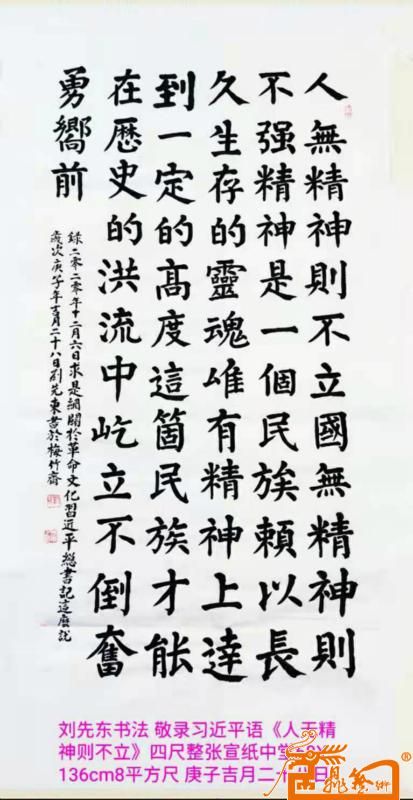 人無精神則不立國無精神則
不强精神是一個民族賴以長
久生存的靈魂唯有精神上達
到一定的高度這箇民族才能
在歷史的洪流中屹立不倒奮
勇嚮前
錄二零二零年十二月六日求是網關於革命文化習近平總書記這麽說
歲次庚子年吉月二十八日劉先東書於梅竹齋
刘先东书法 敬录习近平语《人无精
神则不立》四尺整张宣纸中堂
136cm8平方尺 庚子吉月二十八日